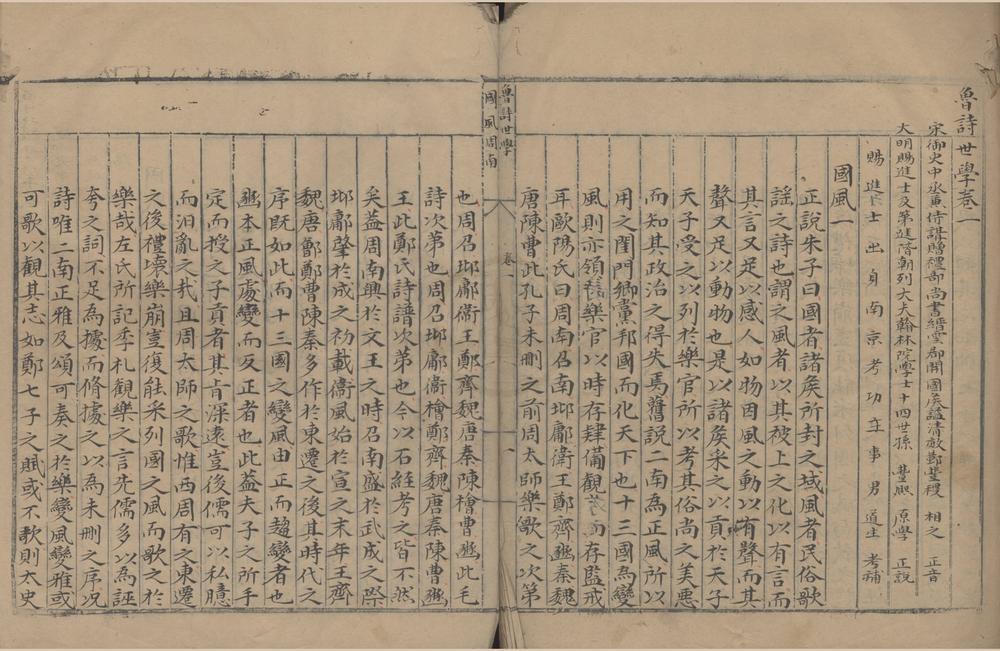 魯詩世學卷一
宋御史中丞兼侍講贈禮部尚書縉雲郡開國矦謚清敏鄞豐稷 相之 正音
大明賜進士及第進階朝列大夫翰林院學士十四世孫 豐熙 原學 正說
賜進士出身南京考功主事男 道生 考補
國風一
正說朱子曰國者諸矦所封之域風者民俗歌
謠之詩也謂之風者以其被上之化以有言而
其言又足以感人如物因風之動以有聲而其
聲又足以動物也是以諸矦采之以貢於天子
天子受之以列於樂官所以考其俗尚之美惡
而知其政治之得失焉舊說二南為正風所以
用之閨門鄉黨邦國而化天下也十三國為變
風則亦領在樂官以時存肄備觀省而存監戒
耳歐陽氏曰周南召南邶鄘衛王鄭齊豳秦魏
唐陳曹此孔子未刪之前周太師樂歌之次第
魯詩世學
國風周南
卷一
一
也周召邶鄘衛王鄭齊魏唐秦陳檜曹豳此毛
詩次第也周召邶鄘衛檜鄭齊魏唐秦陳曹豳
王此鄭氏詩譜次第也今以石經考之皆不然
矣葢周南興於文王之時召南盛於武成之際
邶鄘肇於成之初載衛風始於宣之末年王齊
魏唐鄶鄭曹陳秦多作於東遷之後其時代之
序既如此而十三國之變風由正而趨變者也
豳本正風處變而反正者也此葢夫子之所手
定而授之子貢者其肯深遠豈後儒可以私臆
而汩亂之哉且周太師之歌惟西周有之東遷
之後禮壞樂崩豈復能采列國之風而歌之於
樂哉左氏所記季札觀樂之言先儒多以為誣
夸之詞不足為據而脩據之以為未刪之序况
詩唯二南正雅及頌可奏之於樂變風變雅或
可歌以觀其志如鄭七子之賦或不歌則太史